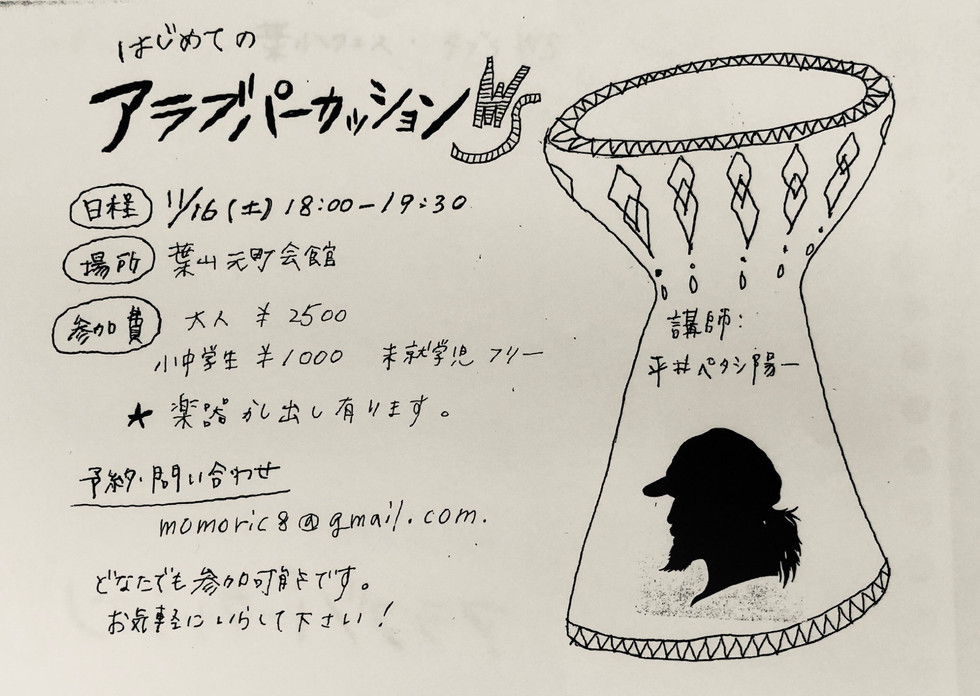 はじめての
アラブパーカッション
日程 11/16(土) 18:00-19:30
場所 葉山元町会館
参加費 大人 ¥2500
小中学生 ¥1000 未就学児 フリー
★ 楽器かし出し有ります。
予約・問い合わせ
momoric8@gmail.com.
どなたでも参加可能です。
お気軽にいらして下さい!
講師:
平井ペタシ陽一